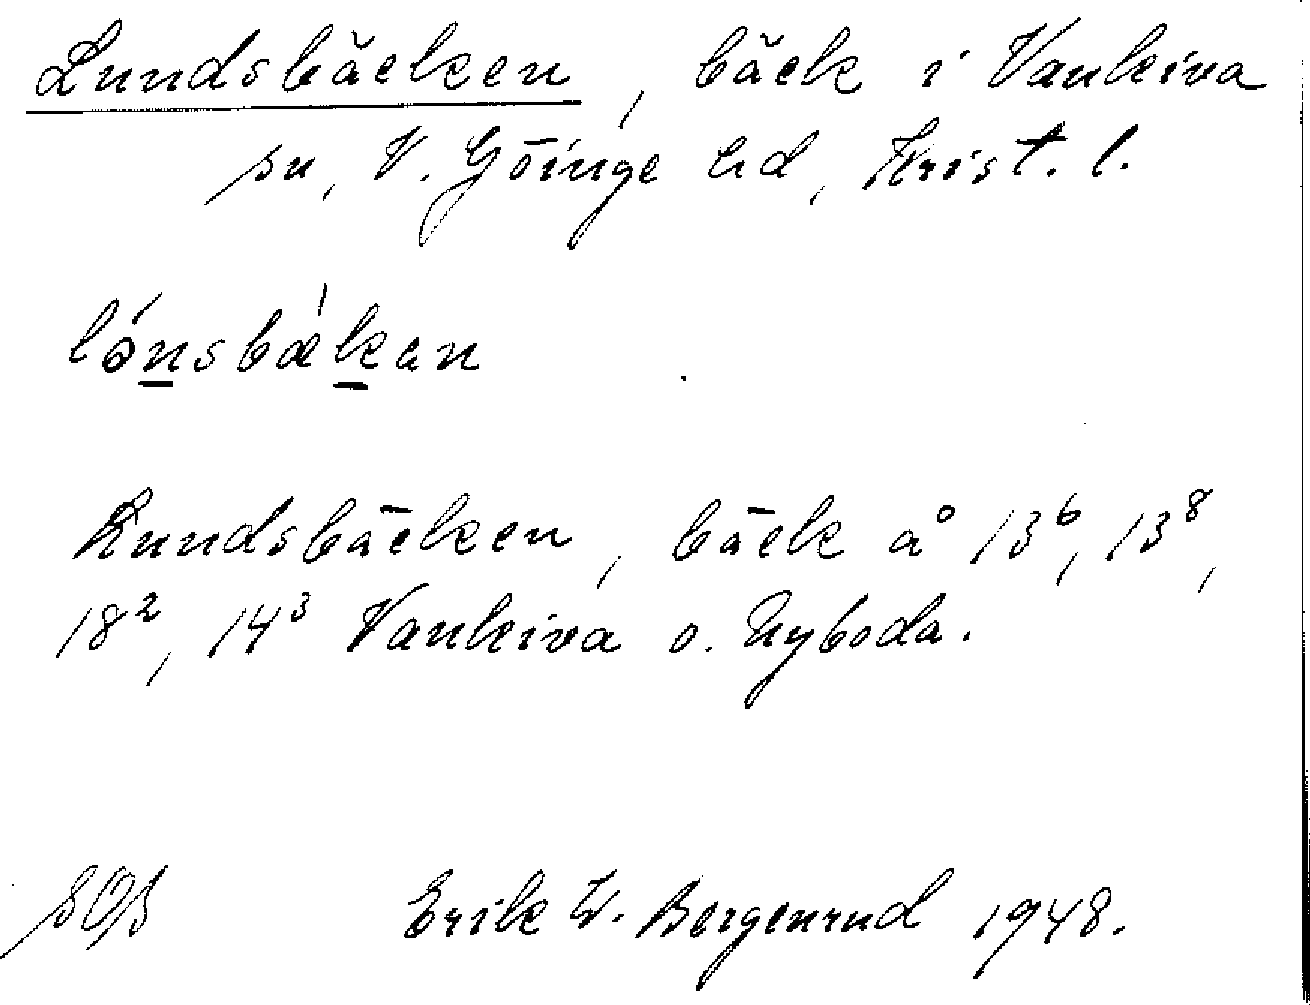 Lundsbäcken, bäck i Vankiva
sn, V. Göinge hd, Krist. l.
lónsbækan
Lundsbäcken, bäck å 13⁶, 13⁸,
18², 14³ Vankiva o. Nyboda.
Erik W. Bergenrud 1948.